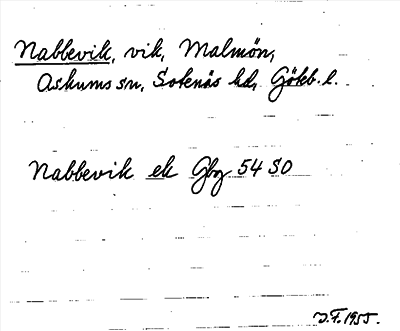 Nabbevik, vik, Malmön,
Askums sn, Sotenäs hd, Götb. l.
Nabbevik ek Gbg 54 SO
J.F. 1955.